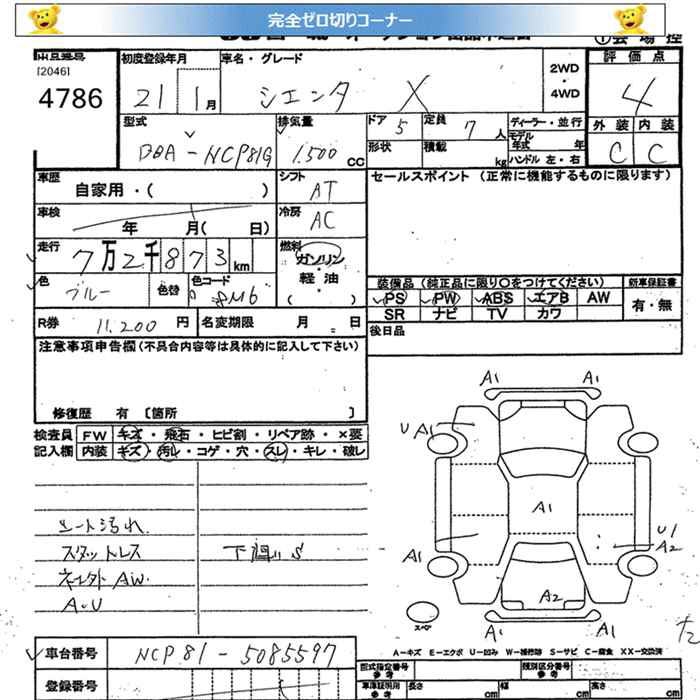 完全ゼロ切りコーナー
[2046]
4786
初度登録年月 車名・グレード 2WD・4WD 評価点
21 1月 シエンタ X 4
型式 排気量 ドア 5 定員 7人 ディーラー・並行 外装 内装
DBA-NCP81G 1,500cc 形状 積載 kg モデル年式 年 ハンドル 左・右 C C
車歴 自家用・( ) シフト AT セールスポイント (正常に機能するものに限ります)
車検 年 月( 日) 冷房 AC
走行 7万2千873km 燃料 ガソリン 軽・油 ( )
色 ブルー 色替 色コード 8M6
装備品 (純正品に限り○をつけてください) 新車保証書
PS PW ABS エアB AW 有・無
SR ナビ TV カワ
R券 11,200円 名変期限 月 日 後日品
注意事項申告欄 (不具合内容等は具体的に記入して下さい)
修復歴 有 〔箇所 〕
検査員 FW キズ・飛石・ヒビ割・リペア跡・×要
記入欄 内装 キズ・汚レ・コゲ・穴・スレ・キレ・破レ
シート汚れ
スタットレス 下廻りS
ネジ外AW.
A・U
A1 A1
U A1
A1
A1 U1
A2
A2
スペア
1/2
A-キズ E-エクボ U-凹み W-補修跡 S-サビ C-腐食 XX-交換済
車台番号 NCP81-5085597
登録番号
型式指定番号 参考 類別区分番号 参考
車庫証明用 参考 長さ cm 幅 cm 高さ cm